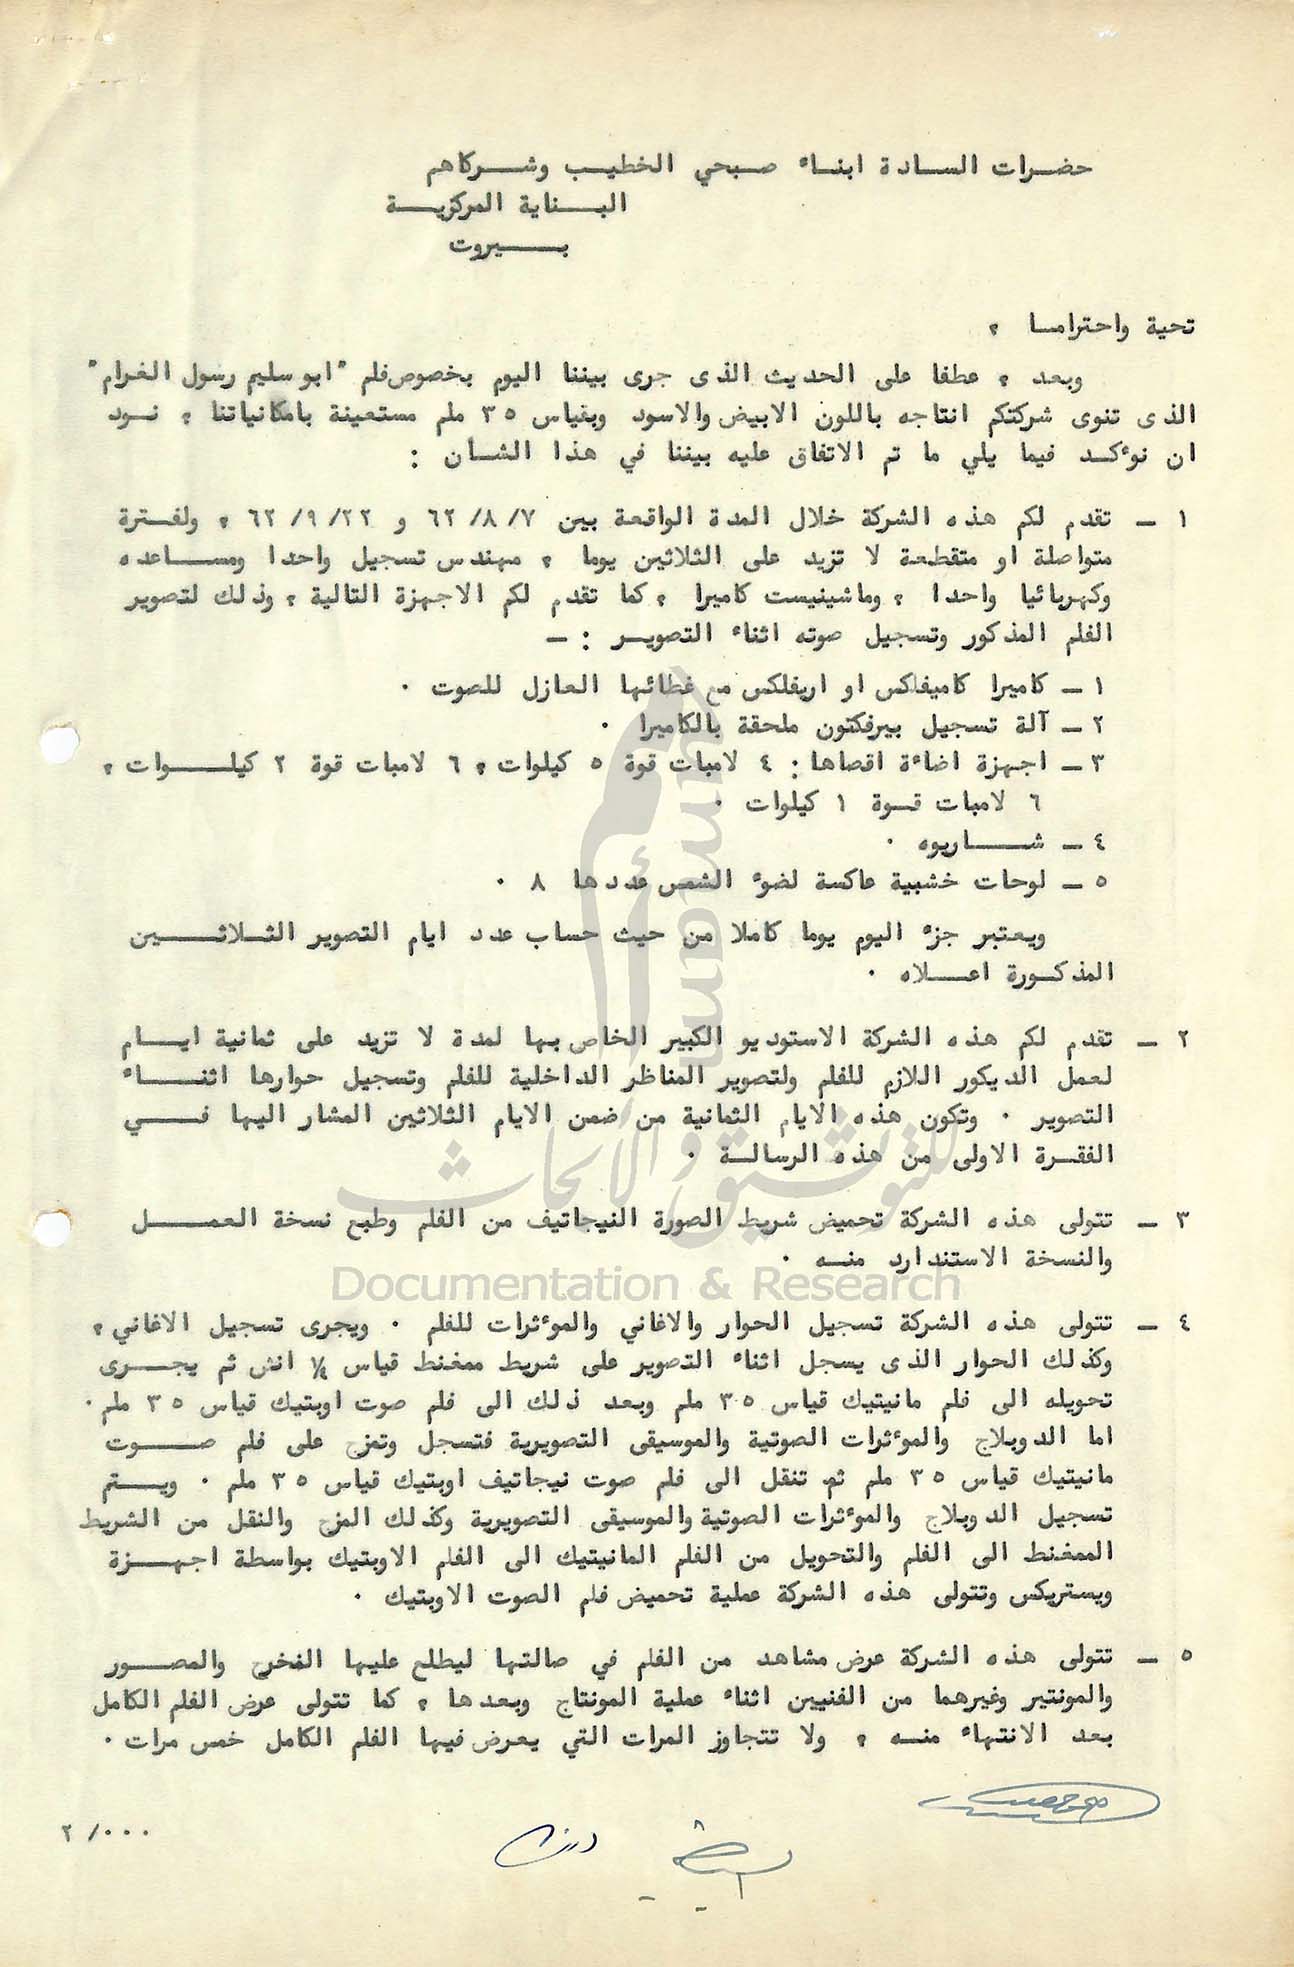 حضرات السادة ابناء صبحي الخطيب وشركاهم
البناية المركزية
بيروت
تحية واحتراما ،
وبعد ، عطفا على الحديث الذى جرى بيننا اليوم بخصوص فلم "ابو سليم رسول الغرام"
الذى تنوى شركتكم انتاجه باللون الابيض والاسود وبقياس ٣٥ ملم مستعينة بامكانياتنا ، نود
ان نوءكد فيما يلي ما تم الاتفاق عليه بيننا في هذا الشأن :
١ – تقدم لكم هذه الشركة خلال المدة الواقعة بين ٦٢/٨/٧ و ٦٢/٩/٢٢ ، ولفترة
متواصلة او متقطعة لا تزيد على الثلاثين يوما ، مهندس تسجيل واحدا ومساعده
وكهربائيا واحدا ، وماشينيست كاميرا ، كما تقدم لكم الاجهزة التالية ، وذلك لتصوير
الفلم المذكور وتسجيل صوته اثناء التصوير : –
١ – كاميرا كاميفلكس او اريفلكس مع غطائها العازل للصوت .
٢ – آلة تسجيل بيرفكتون ملحقة بالكاميرا .
٣ – اجهزة اضاءة اقصاها : ٤ لامبات قوة ٥ كيلوات ، ٦ لامبات قوة ٢ كيلوات ،
٦ لامبات قوة ١ كيلوات .
٤ – شاريوه .
٥ – لوحات خشبية عاكسة لضوء الشمس عددها ٨ .
ويعتبر جزء اليوم يوما كاملا من حيث حساب عدد ايام التصوير الثلاثين
المذكورة اعلاه .
٢ – تقدم لكم هذه الشركة الاستوديو الكبير الخاص بها لمدة لا تزيد على ثمانية ايام
لعمل الديكور اللازم للفلم ولتصوير المناظر الداخلية للفلم وتسجيل حوارها اثناء
التصوير . وتكون هذه الايام الثمانية من ضمن الايام الثلاثين المشار اليها في
الفقرة الاولى من هذه الرسالة .
٣ – تتولى هذه الشركة تحميض شريط الصورة النيجاتيف من الفلم وطبع نسخة العمل
والنسخة الاستندارد منه .
٤ – تتولى هذه الشركة تسجيل الحوار والاغاني والموءثرات للفلم . ويجرى تسجيل الاغاني ،
وكذلك الحوار الذى يسجل اثناء التصوير على شريط ممغنط قياس ¼ انش ثم يجرى
تحويله الى فلم مانيتيك قياس ٣٥ ملم وبعد ذلك الى فلم صوت اوبتيك قياس ٣٥ ملم .
اما الدوبلاج والموءثرات الصوتية والموسيقى التصويرية فتسجل وتمزج على فلم صوت
مانيتيك قياس ٣٥ ملم ثم تنقل الى فلم صوت نيجاتيف اوبتيك قياس ٣٥ ملم . ويتم
تسجيل الدوبلاج والموءثرات الصوتية والموسيقى التصويرية وكذلك المزج والنقل من الشريط
الممغنط الى الفلم والتحويل من الفلم المانيتيك الى الفلم الاوبتيك بواسطة اجهزة
ويستريكس وتتولى هذه الشركة عملية تحميض فلم الصوت الاوبتيك .
٥ – تتولى هذه الشركة عرض مشاهد من الفلم في صالتها ليطلع عليها المخرج والمصور
والمونتير وغيرهما من الفنيين اثناء عملية المونتاج وبعدها ، كما تتولى عرض الفلم الكامل
بعد الانتهاء منه ، ولا تتجاوز المرات التي يعرض فيها الفلم الكامل خمس مرات .
٢ /...
أمم
umam
للتوثيق والأبحاث
Documentation & Research